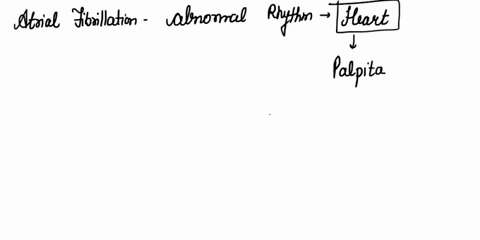 Atrial Fibrillation - abnormal Rhythm → Heart
↓
Palpita